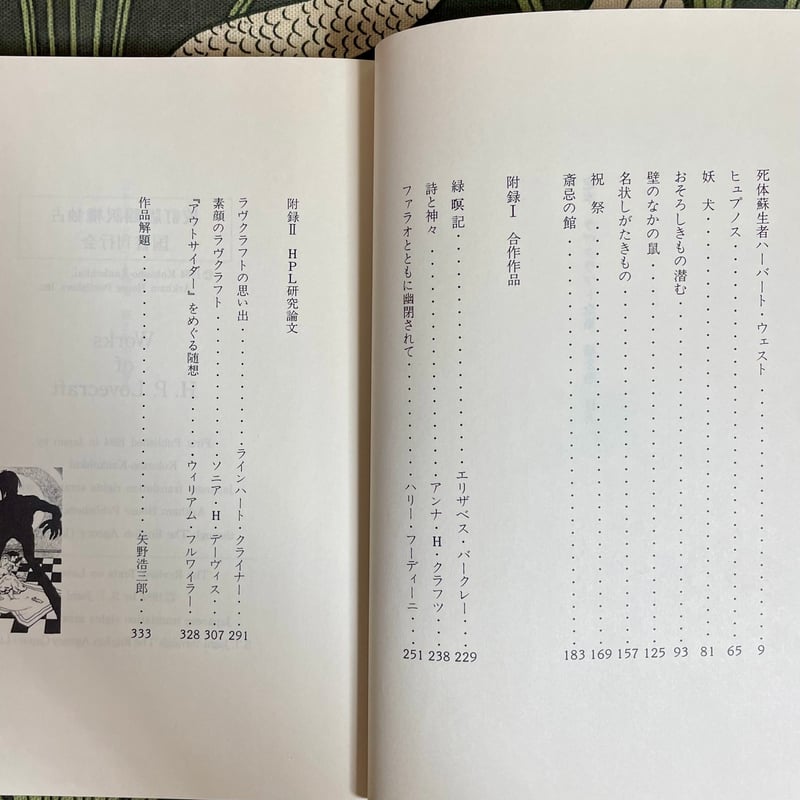 死体蘇生者ハーバート ウェスト・・・・・・・・・・・・・・・・・・9
ヒュプノス・・・・・・・・・・・・・・・・・・65
妖 犬・・・・・・・・・・・・・・・・・・81
おそろしきもの潜む・・・・・・・・・・・・・・・・・・93
壁のなかの鼠・・・・・・・・・・・・・・・・・・125
名状しがたきもの・・・・・・・・・・・・・・・・・・157
祝 祭・・・・・・・・・・・・・・・・・・169
斎忌の館・・・・・・・・・・・・・・・・・・183
附録Ⅰ 合作作品
緑 瞑 記・・・・・・・・・・・・エリザベス・バークレー・・・229
詩と神々・・・・・・・・・・・・アンナ・H・クラフツ・・・238
ファラオとともに幽閉されて・・・・・・・・・ハリー・フーディーニ・・・251
附録Ⅱ HPL研究論文
ラヴクラフトの思い出・・・・・・・・ラインハート・クライナー・・・291
素顔のラヴクラフト・・・・・・・・ソニア・H・デーヴィス・・・307
『アウトサイダー』をめぐる随想・・・・・・ウィリアム・フルワイラー・・・328
作品解題・・・・・・・・・・・・・・矢野浩三郎・・・333